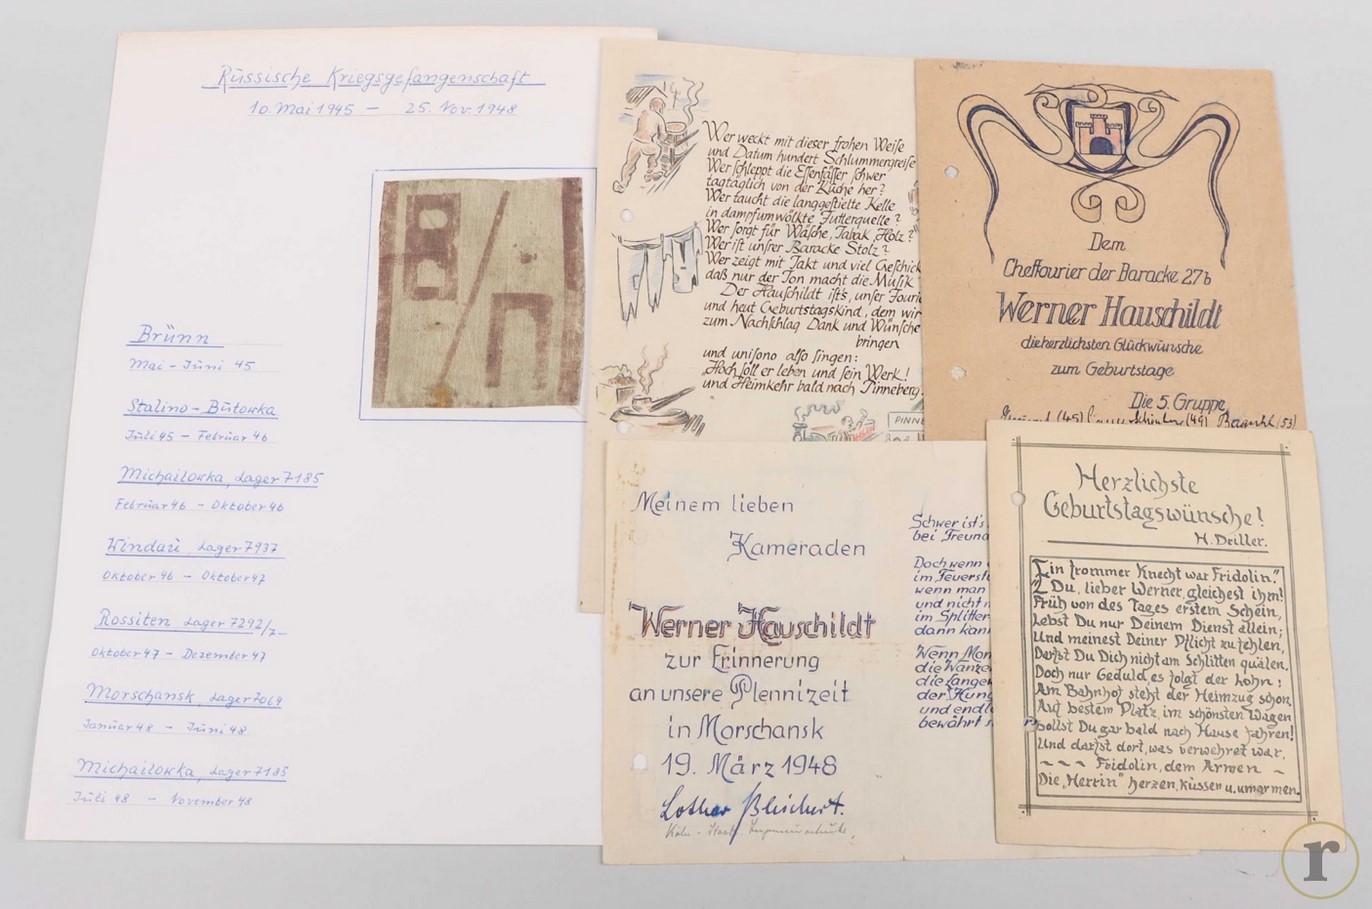 Russische Kriegsgefangenschaft
10. Mai 1945 — 25. Nov. 1948
B/n
Brünn
Mai - Juni 45
Stalino - Butowka
Juli 45 - Februar 46
Michailowka, Lager 7185
Februar 46 - Oktober 46
Lager 7937
Oktober 46 - Oktober 47
Rossiten Lager 7292/7
Oktober 47 - Dezember 47
Morschansk, Lager 7064
Januar 48 - Juni 48
Michailowka, Lager 7185
Juli 48 - November 48
Wer weckt mit dieser frohen Weise
und Datum hundert Schlummergreise
Wer schleppt die Essenfässer schwer
tagtäglich von der Küche her?
Wer taucht die langgestielte Kelle
in dampfumwölkte Futterquelle?
Wer sorgt für Wäsche, Tabak, Holz?
Wer ist unsrer Baracke Stolz?
Wer zeigt mit Takt und viel Geschick
daß nur der Ton macht die Musik
Der Hauschildt ist's, unser Fourie
und heut Geburtstagskind, dem wir
zum Nachschlag Dank und Wünsche
bringen
und unisono also singen:
Hoch soll er leben und sein Werk!
und Heimkehr bald nach Pinneberg
PINNE
Dem
Cheffourier der Baracke 27b
Werner Hauschildt
die herzlichsten Glückwünsche
zum Geburtstage
Die 5. Gruppe
(45) (49) (53)
Meinem lieben
Kameraden
Werner Hauschildt
zur Erinnerung
an unsere Plennizeit
in Morschansk
19. März 1948
Lothar Bleichert.
Köln -
Schwer ist's
bei Freund
Doch wenn
im Feuerst
wenn man
und nicht
im Splitter
dann kann
Wenn Mor
die Wanze
die lange
der Hung
und endl
bewährt s
Herzlichste
Geburtstagswünsche!
H. Driller.
"Ein frommer Knecht war Fridolin."
Du, lieber Werner, gleichest ihm!
Früh von des Tages erstem Schein,
Lebst Du nur Deinem Dienst allein;
Und meinest Deiner Pflicht zu fehlen,
Darfst Du Dich nicht am Schlitten quälen.
Doch nur Geduld, es folgt der Lohn:
Am Bahnhof steht der Heimzug schon
Auf bestem Platz, im schönsten Wagen
Sollst Du gar bald nach Hause fahren!
Und darfst dort, was verwehret war,
- - - Fridolin, dem Armen -
Die "Herrin" herzen, küssen u. umarmen.
r